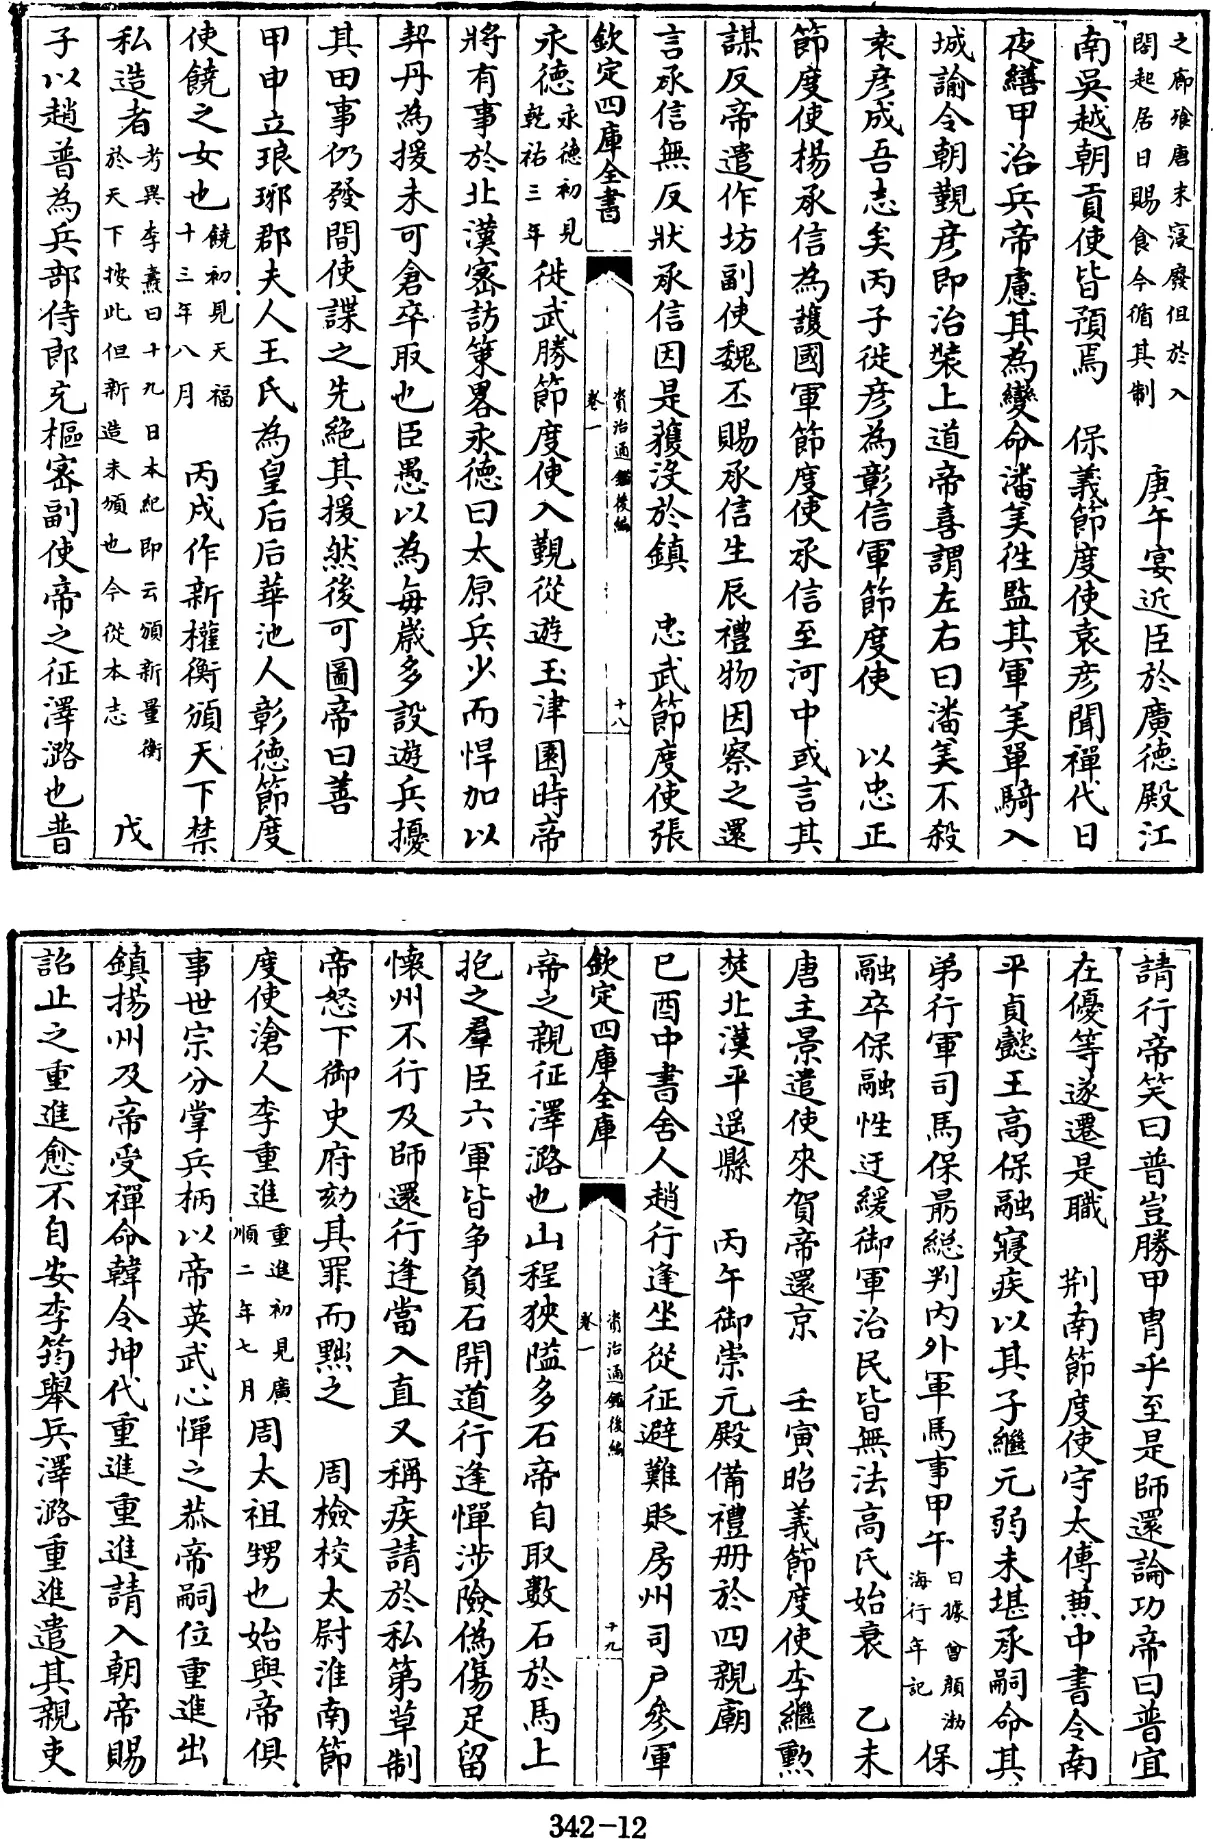 之廊飱唐末寖廢但於入
閤起居日賜食今循其制　庚午宴近臣於廣德殿江
南吳越朝貢使皆預焉　保義節度使袁彥聞禪代日
夜繕甲治兵帝慮其為變命潘美徃監其軍美單騎入
城諭令朝覲彥即治裝上道帝喜謂左右曰潘美不殺
袁彥成吾志矣丙子徙彥為彰信軍節度使　以忠正
節度使楊承信為護國軍節度使承信至河中或言其
謀反帝遣作坊副使魏丕賜承信生辰禮物因察之還
言承信無反狀承信因是獲沒於鎮　忠武節度使張
欽定四庫全書
資治通鑑後編
卷一
十八
永德永德初見乾祐三年徙武勝節度使入覲從遊玉津園時帝
將有事於北漢密訪策畧永德曰太原兵少而悍加以
契丹為援未可倉卒取也臣愚以為每歲多設遊兵擾
其田事仍發間使諜之先絕其援然後可圖帝曰善
甲申立琅琊郡夫人王氏為皇后后華池人彰德節度
使饒之女也饒初見天福十三年八月　丙戌作新權衡頒天下禁
私造者考異李燾曰十九日本紀即云頒新量衡於天下按此但新造未頒也今從本志　戊
子以趙普為兵部侍郎充樞密副使帝之征澤潞也普
請行帝笑曰普豈勝甲冑乎至是師還論功帝曰普宜
在優等遂遷是職　荆南節度使守太傅兼中書令南
平貞懿王高保融寢疾以其子繼元弱未堪承嗣命其
弟行軍司馬保勗総判内外軍馬事甲午日據曾顏渤海行年記保
融卒保融性迂緩御軍治民皆無法高氏始衰　乙未
唐主景遣使來賀帝還京　壬寅昭義節度使李繼勲
焚北漢平遥縣　丙午御崇元殿備禮册於四親廟
巳酉中書舍人趙行逢坐從征避難貶房州司戶參軍
欽定四庫全庫
資治通鑑後編
卷一
十九
帝之親征澤潞也山程狹隘多石帝自取數石於馬上
抱之羣臣六軍皆争負石開道行逢憚涉險偽傷足留
懷州不行及師還行逢當入直又稱疾請於私第草制
帝怒下御史府劾其罪而黜之　周檢校太尉淮南節
度使滄人李重進重進初見廣順二年七月周太祖甥也始與帝俱
事世宗分掌兵柄以帝英武心憚之恭帝嗣位重進出
鎮揚州及帝受禪命韓令坤代重進重進請入朝帝賜
詔止之重進愈不自安李筠舉兵澤潞重進遣其親吏
342-12